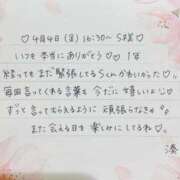 ♡ 4月4日(金) 16:30〜 S様 ♡
いつも本当にありがとう♡ 1年
経ってもまだ緊張してるSくんかわいかった♡
毎回言ってくれる言葉も今だに嬉しいよ♡
ずっと言ってもらえるように頑張らなきゃ
また会える日を楽しみにしてるね♡
湊